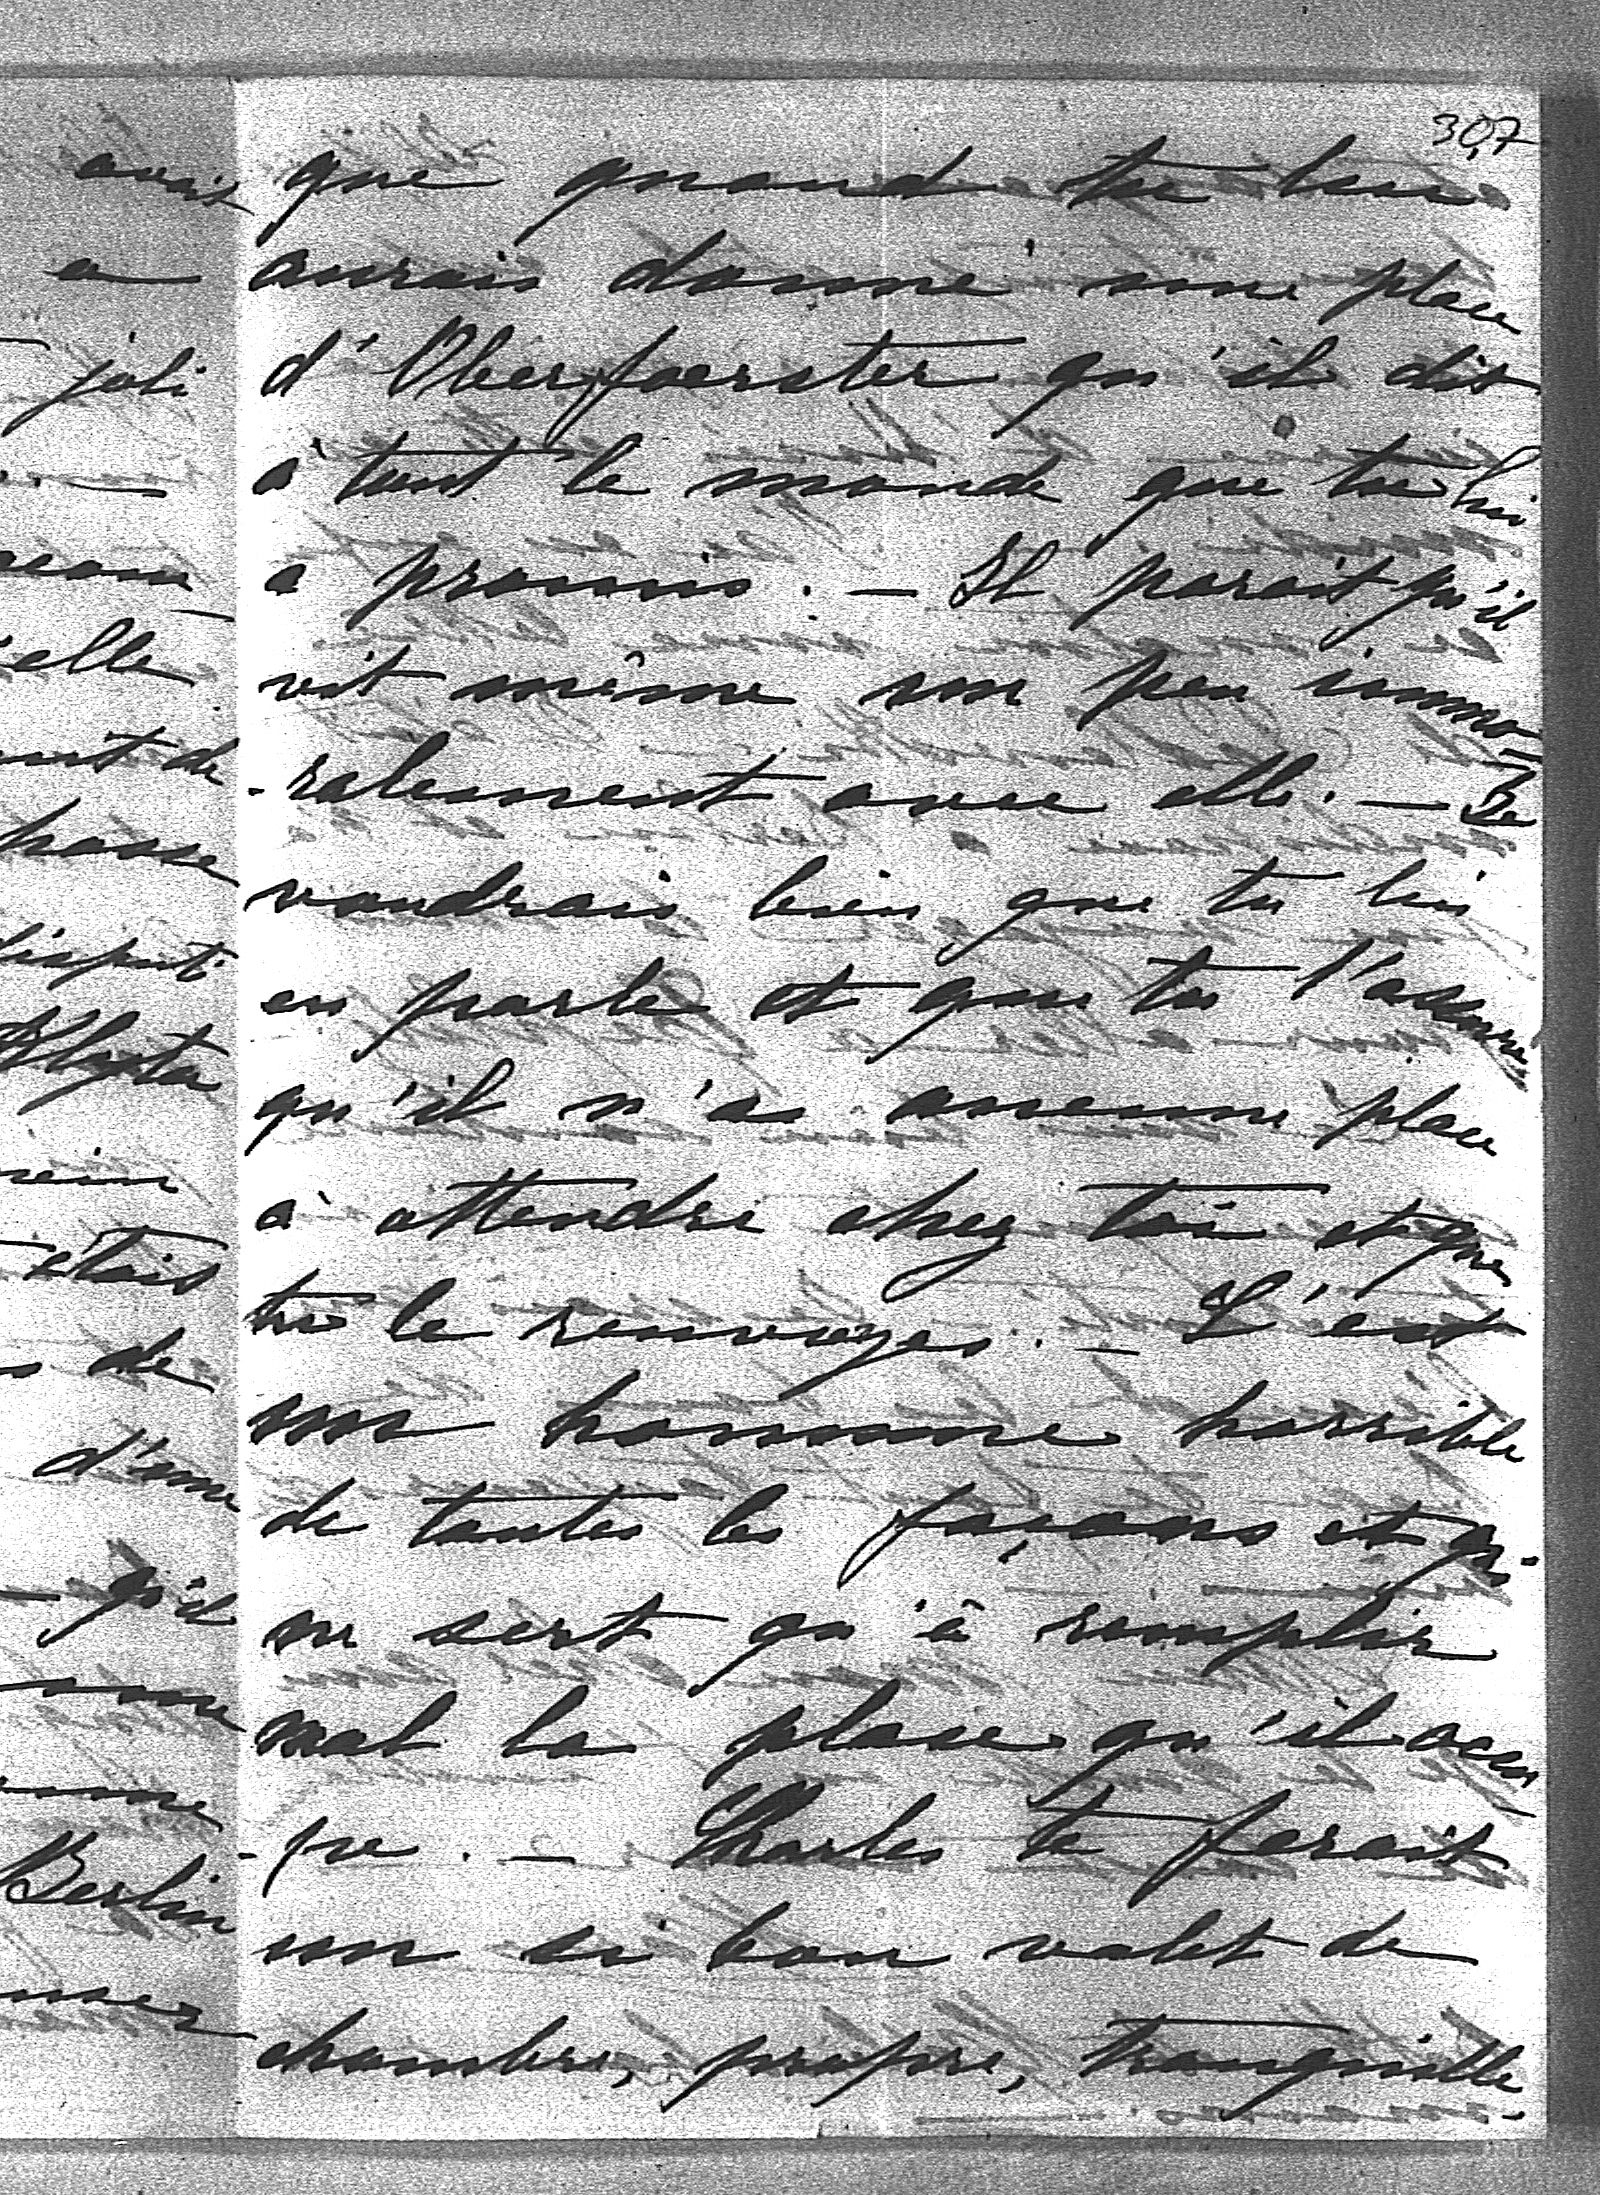 307
que quand tu lui
aurais donné une place
d'Oberfoerster qu'il dit
à tout le monde que tu lui
a promis. — Il parait qu'il
vit même un peu immo-
-ralement avec elle. — Je
voudrais bien que tu lui
en parle et que tu l'assure
qu'il n'a aucune place
à attendre chez toi et que
tu le renvoyes. — C'est
un homme horrible
de toutes les façons et qui
ne sert qu'à remplir
mal la place qu'il occu
-pe. — Charles te ferait
un si bon valet de
chambre, propre, tranquille
avais
a
joli
elle
de
passe
disputé
étais
de
d'une
qu'il
Berlin